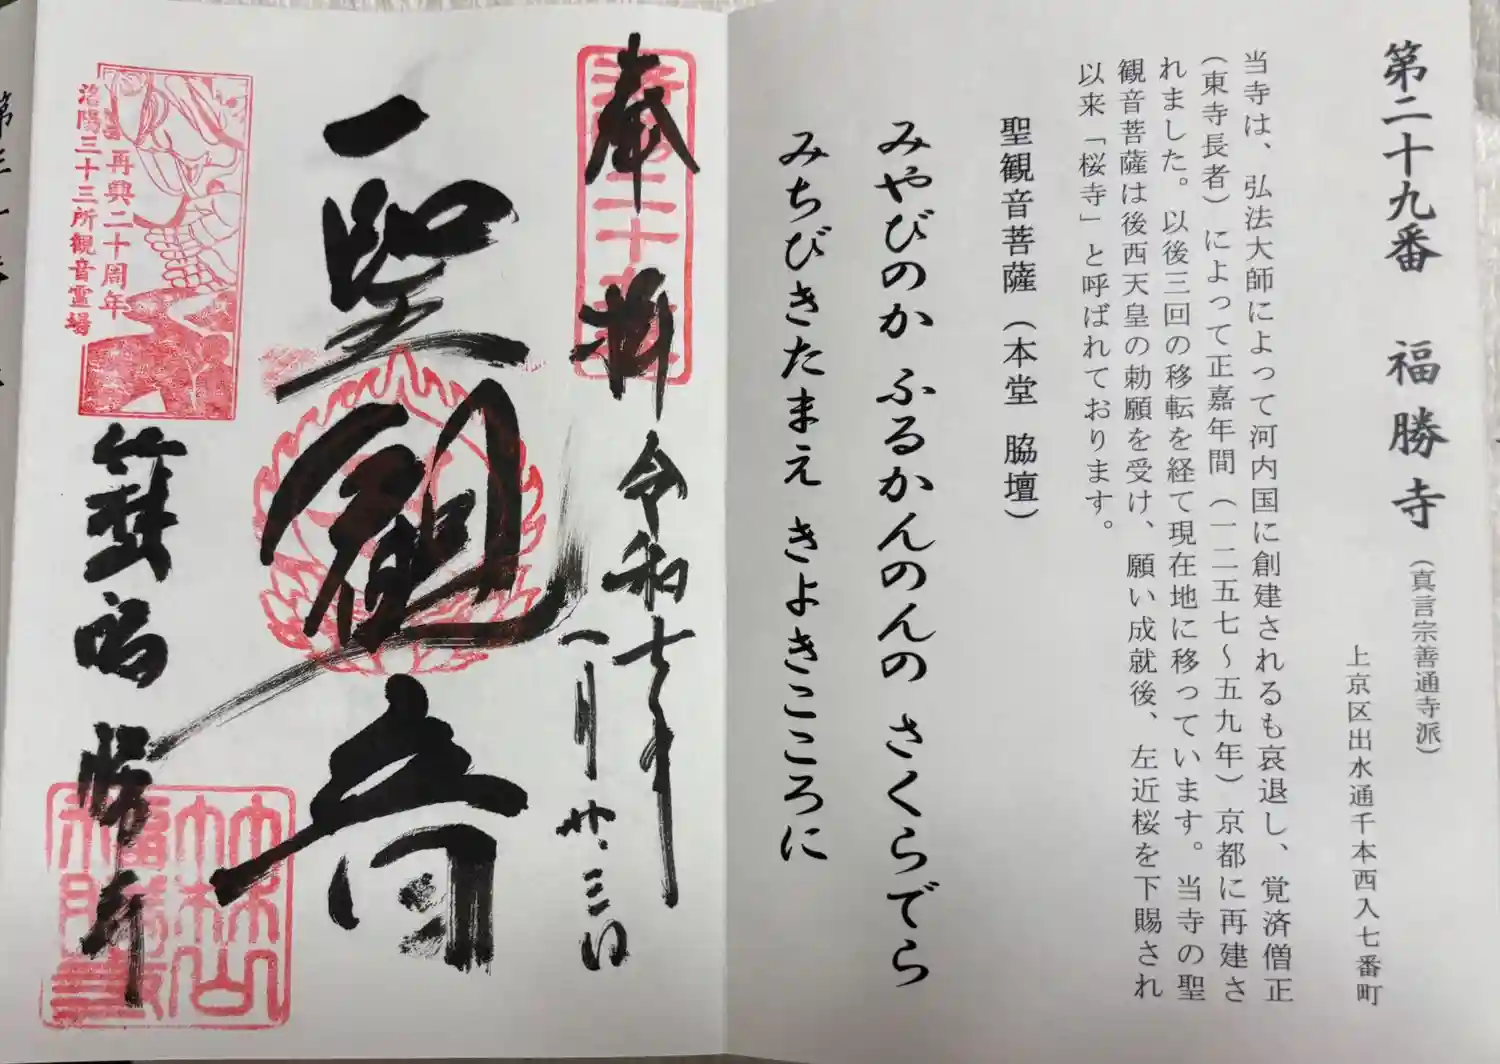 第二十九番　福勝寺（真言宗善通寺派）
上京区出水通千本西入七番町
当寺は、弘法大師によって河内国に創建されるも哀退し、覚済僧正
（東寺長者）によって正嘉年間（一二五七～五九年）京都に再建さ
れました。以後三回の移転を経て現在地に移っています。当寺の聖
観音菩薩は後西天皇の勅願を受け、願い成就後、左近桜を下賜され
以来「桜寺」と呼ばれております。
聖観音菩薩（本堂　脇壇）
みやびのか ふるかんのんの さくらでら
みちびきたまえ きよきこころに
奉拝
令和七年
一月廿三日
聖観音
再興二十周年
洛陽三十三所観音霊場
福勝寺
竹林山
福勝寺